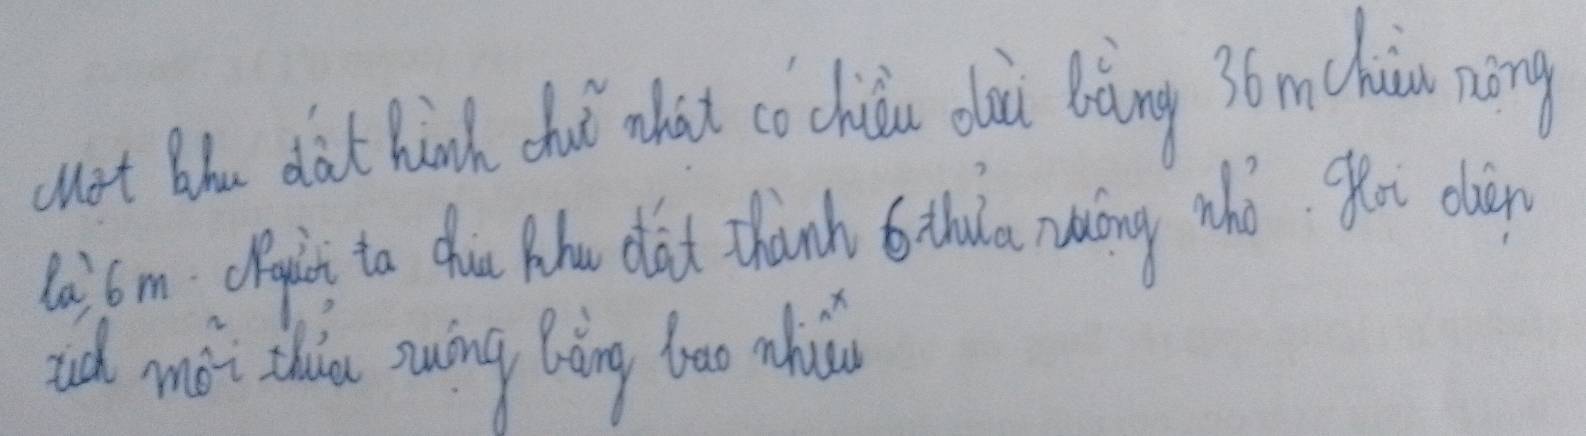 Một khu đất hình chữ nhất có chiều dài bằng 36 m chiều rộng
là 6 m. Người ta chia khu đất thành 6 thửa ruộng nhỏ. Hỏi diện
tích mỗi thửa ruộng bằng bao nhiêu